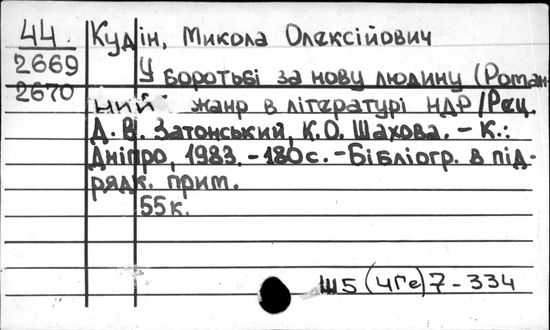 44 Кудін, Микола Олексійович
2669 У боротьбі за нову людину (Роман-
2670 ний жанр в літературі НДР/Рец.
Д. В. Затонський, К.О. Шахова. – К.:
Дніпро, 1983. – 180с. – Бібліогр. в під-
рядк. прим.
55к.
Ш5(4Ге)7-334